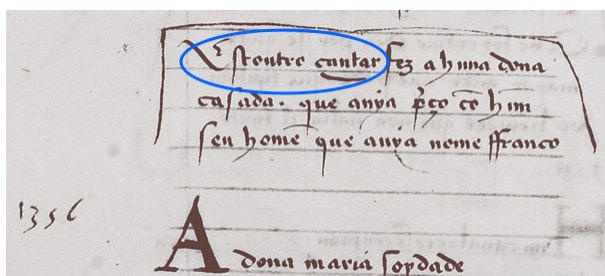 Estoutro cantar fez a hũna dona
casada. que auya p̃ço cõ hũm
seu home que auya nome ffranco
1356
A dona maria soydade